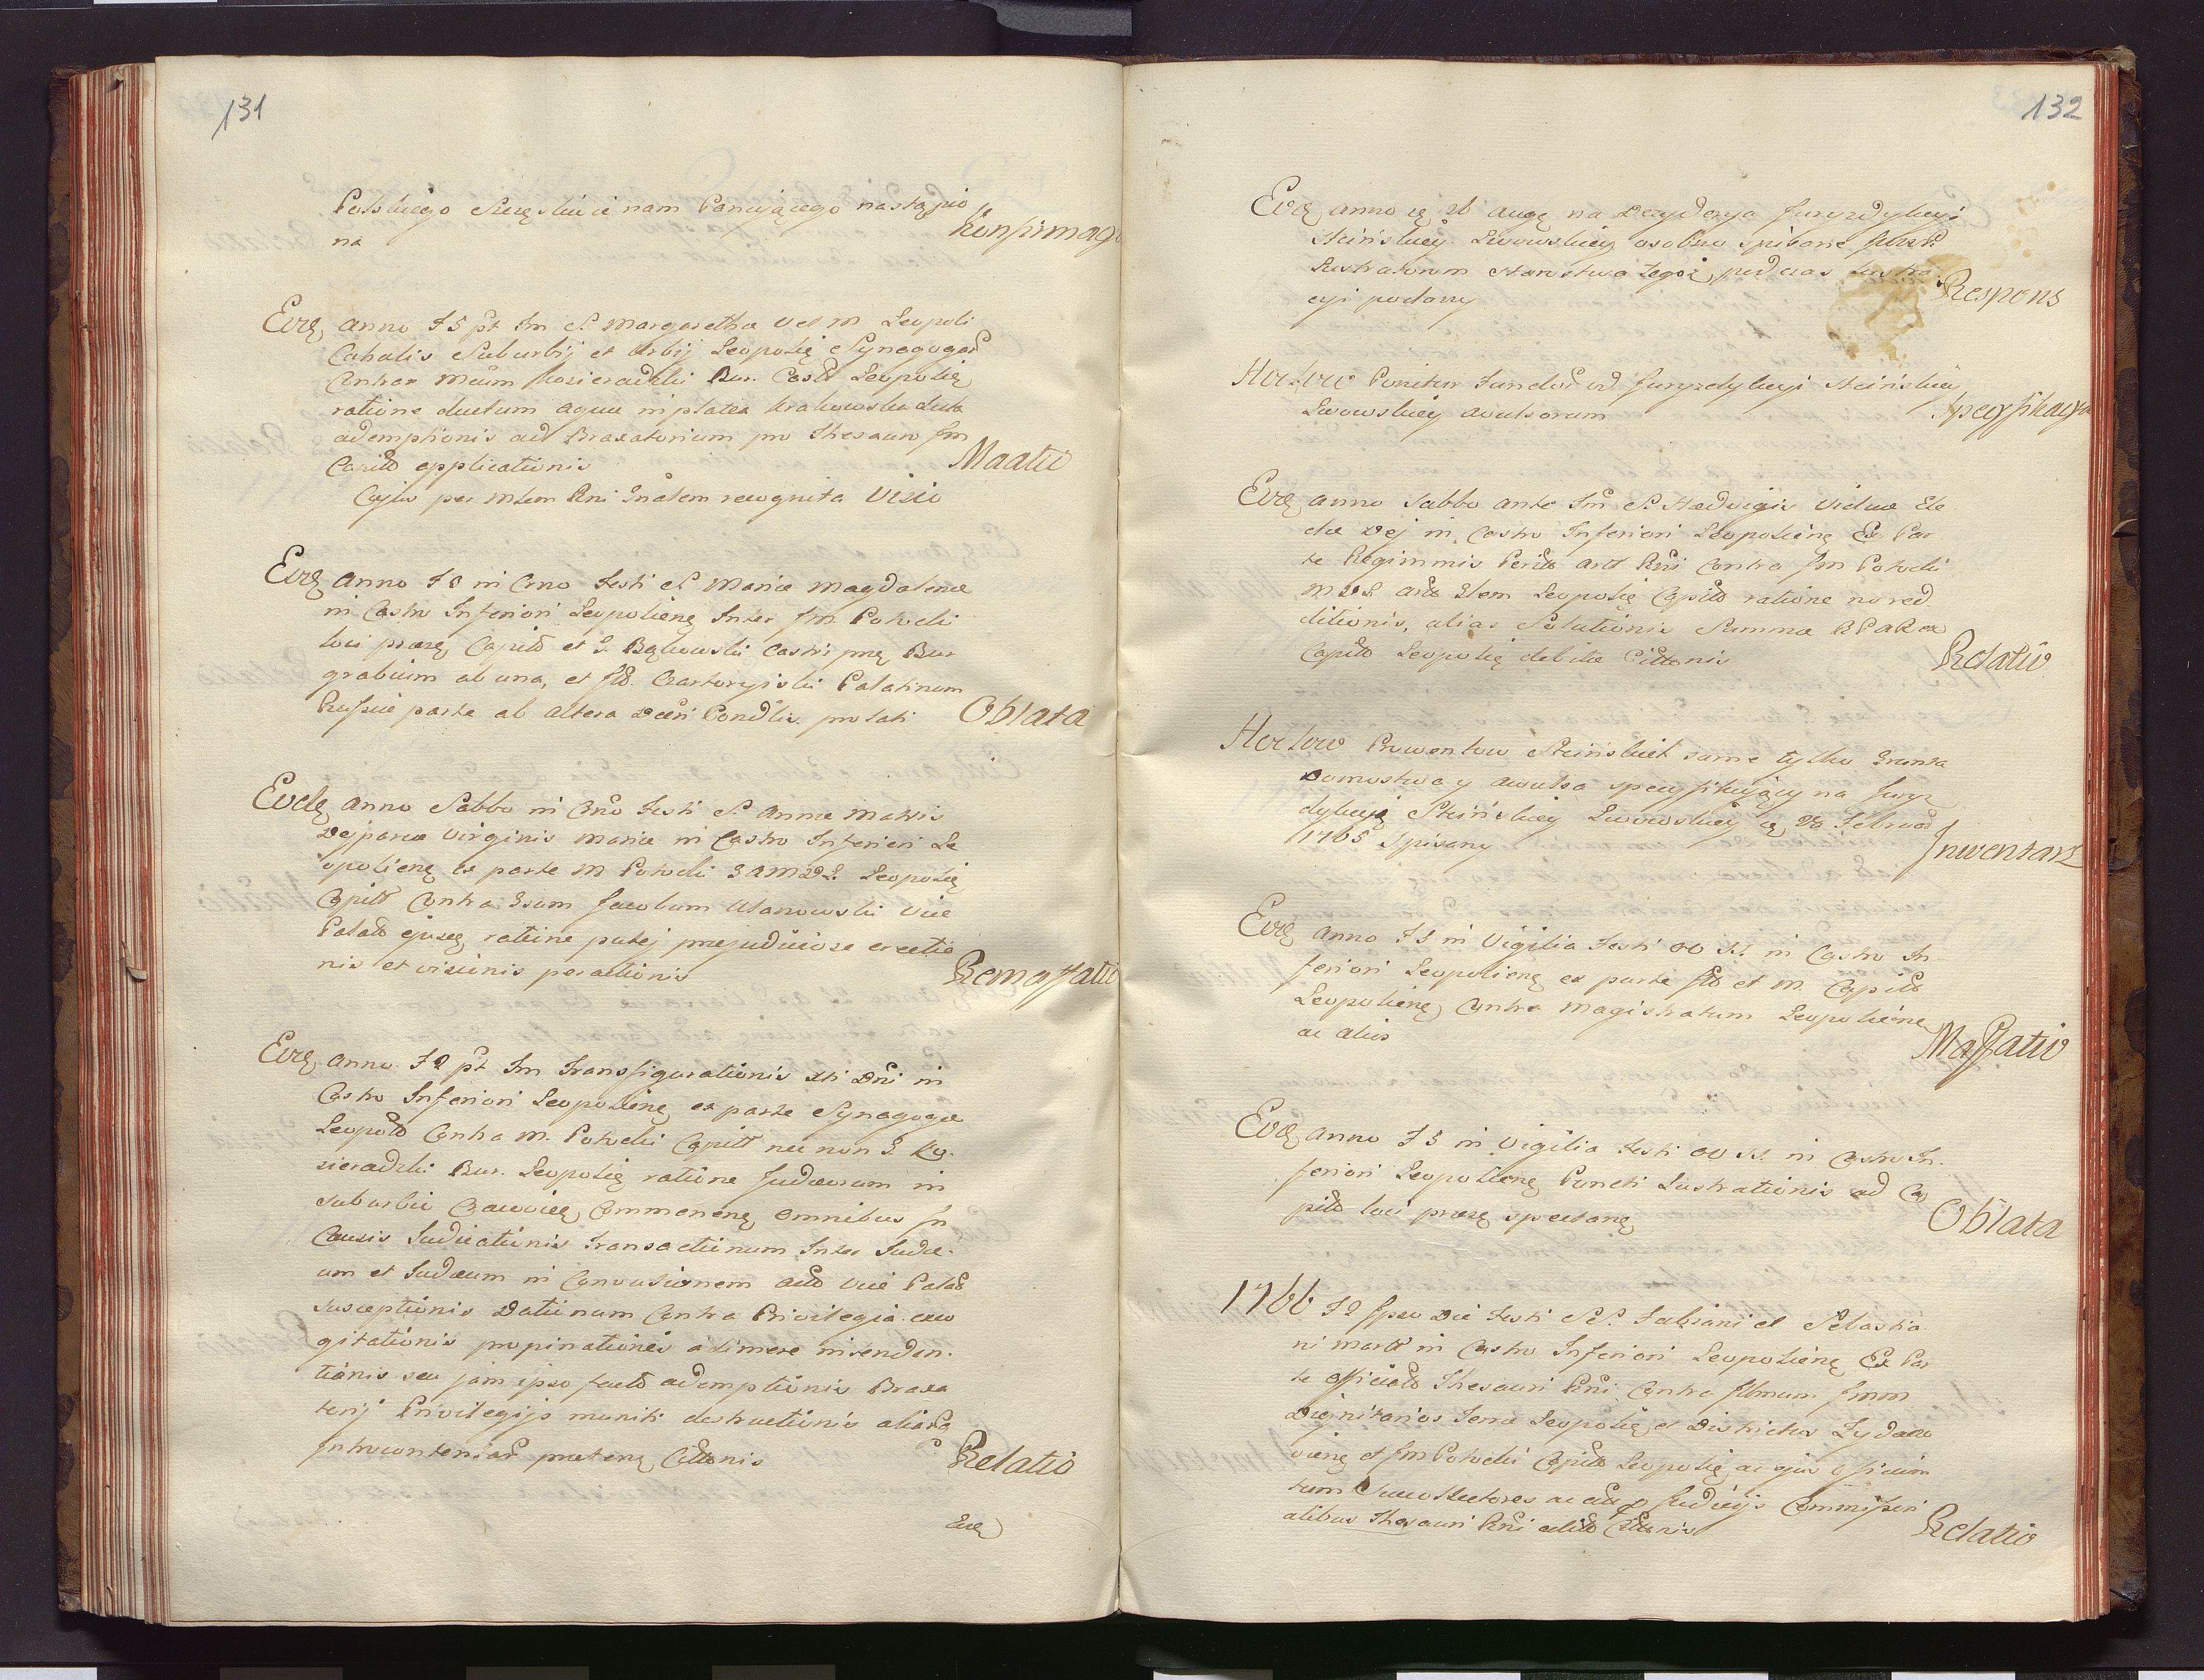 131
Polskiego Szczęśliwie nam Panującego nastąpio
na Konfirmacya
Eodę anno F5 pt Fm S. Margaretha Vet m Leopoli
Cahalis Suburbij et Urbij Leopolię Synagogar
Contra Meum Kosieradzki Bur. Castr Leopolię
ratione ductum aquae in platea Krakowska dicta
ademptionis ad Braxatorium pro Thesauro Im
Capitt applicationis Maatio
Cujus per mtem Rni Gnalem recognita Visio
Eodę anno F6 in Crno Festi S. Mariae Magdalenae
in Castro Inferiori Leopolienę Inter Im Potocki
loci praesę Capitt et G. Bąkowski Castri prę Bur
grabium ab una, et Ill. Czartoryiski Palatinum
Russiae parte ab altera Decri Condlis prolati Oblata
Eodę anno Sabbo in Crno Festi S. Annae Matris
Deiparae Virginis Mariae in Castro Inferiori Le
opolienę ex parte M Potocki GAMDL Leopolię
Capitt Contra Gsum Jacobum Ulanowski Vice
Palatt ejusę ratione putej praejudiciose erectio
nis et visionis peractionis Remaffatio
Eodę anno F2 pt Fm Transfigurationis Xti Dni in
Castro Inferiori Leopolienę ex parte Synagogae
Leopold Contra M. Potocki Capitt nec non G. Ko-
sieradzki Bur. Leopolię ratione Judaeorum in
suburbio Cracovię Commorenę omnibus In
Causis Judicationis Transactionum Inter Judae-
um et Judaeum in Convulsionem Actt Vice Palatt
susceptionis Dationum Contra Privilegia exco
gitationis propinationes adimere intenden-
tionis seu jam ipso facto ademptionis Braxa
torij Privilegijs muniti destructionis aliarq
Introcontentar praetenę Cittonis Relatio
Eodę
132
Eodę anno ę 26 augę na Dezyderya Juryzdykcyi
Steinskiey Lwowskiey osobno spisane
Lustratorum Starostwa tegoż, podczas Lustra-
cyi podany Respons
Hoctove Ponitur Fundor od Juryzdykcyi Steinskiey
Lwowskiey avulsorum Specyfikacya
Eodę anno Sabbo ante Fm S. Hedvigis Viduae Ele
ctae Dej in Castro Inferiori Leopolienę Ex Par
te Regiminis Rni Contra Im Potocki
Leopolię Capitt ratione no red-
ditionis, alias Solutionis Summae
Capitt Leopolię debitae Cittonis Relatio
Hoctove Prowentow Steinskich same tylko Grunta
Domostwa y awulsa specyfikuiący na Juryz
dykcyą Steinskiey Lwowskiey ę 28 Februar
1765 Spisany Inwentarz
Eodę anno F5 in Vigilia Festi OO SS. in Castro In-
feriori Leopolienę ex parte Ill et M. Capitt
Leopolienę Contra Magistratum Leopolienę
ac alios Maffatio
Eodę anno F5 in Vigilia Festi OO SS. in Castro In-
feriori Leopolienę Puncti Lustrationis ad Ca
pitt loci praesę spectanę Oblata
1766 F2 Ipso Die Festi SS. Fabiani et Sebastia
ni Martt in Castro Inferiori Leopolienę Ex Par
te Officialtt Thesauri Rni Contra Illmum Immm
Dignitarios Terrae Leopolię et Districtus Zydaczo
vienę et Im Potocki Capitt Leopolię ac ejus Officium
tum Succollectores ac Judicijs Commissori
alibus Thesauri Rni Cittonis Relatio